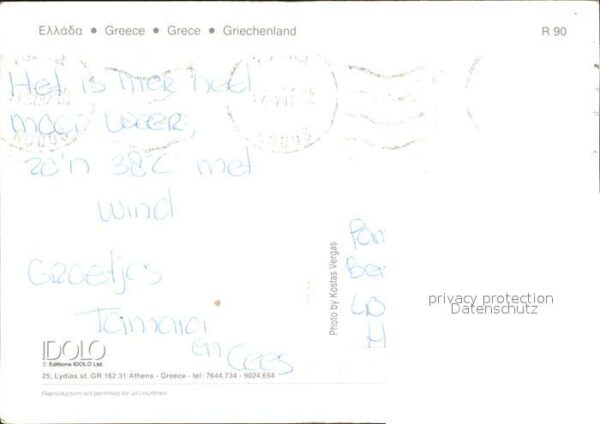 Ελλάδα • Greece • Grece • Griechenland
R 90
Het is hier heel
mooi weer,
zo'n 38°C met
wind
Groetjes
Tamara
en Cees
Photo by Kostas Vergas
privacy protection
Datenschutz
IDOLO
© Editions IDOLO Ltd.
25, Lydias st. GR 162 31 Athens - Greece - tel: 7644.734 - 9024.654
Reproduction not permitted for all countries